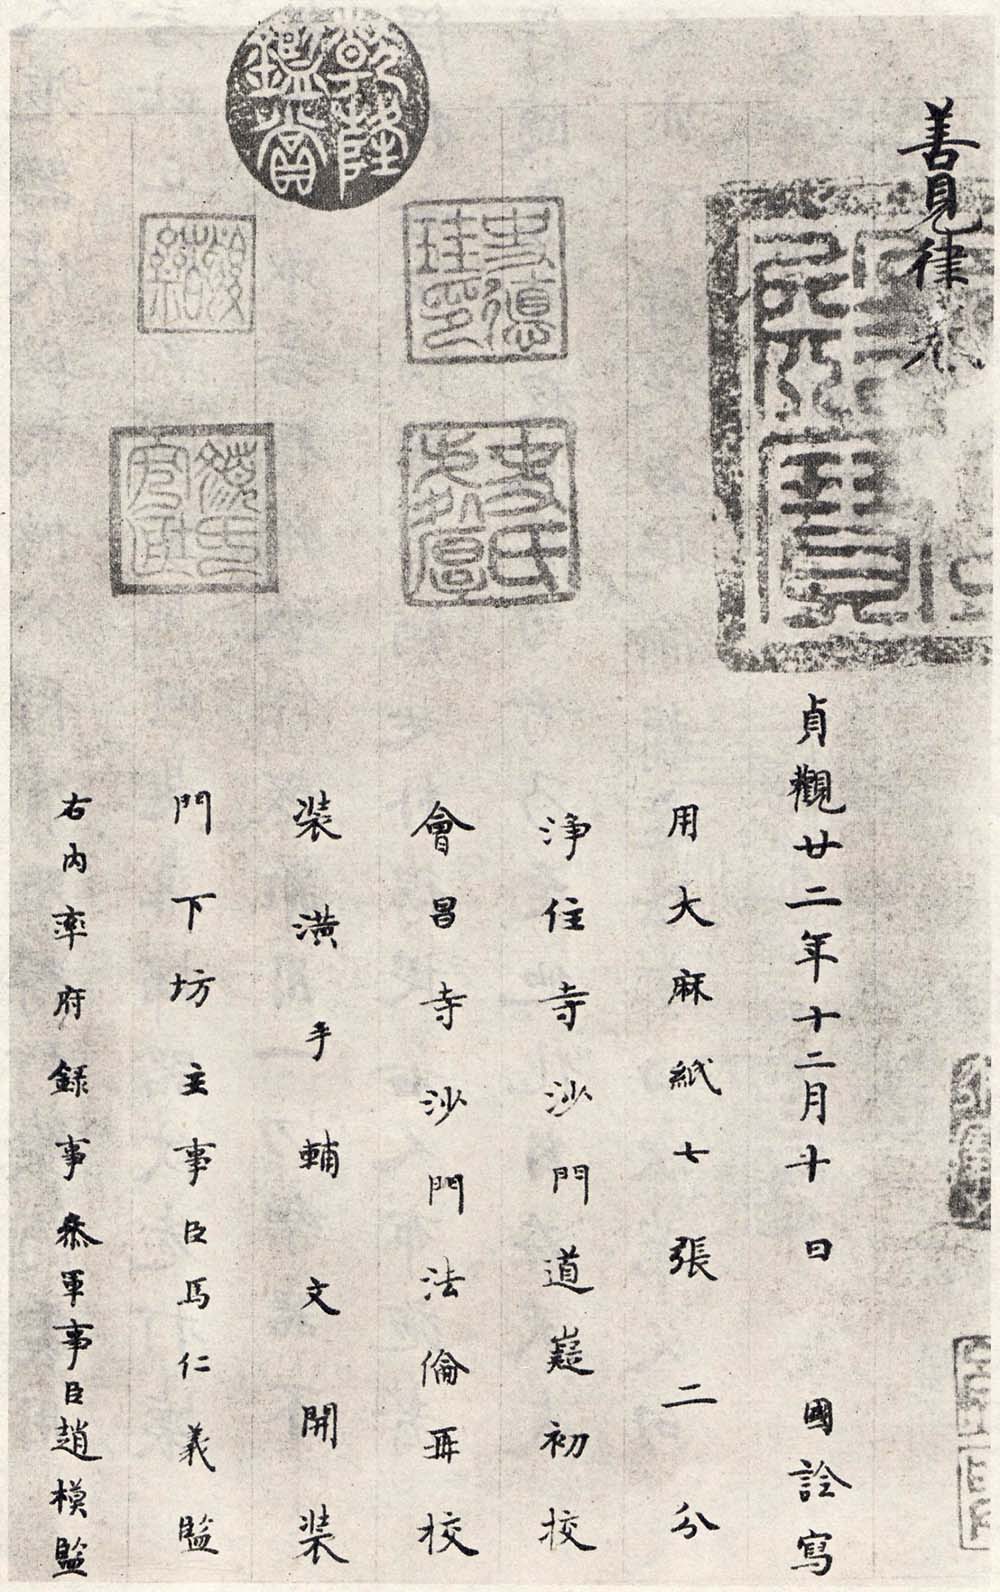 善見律卷
貞觀廿二年十二月十日 國詮寫
用大麻紙七張 二分
淨住寺沙門道嶷初校
會昌寺沙門法倫再校
裝潢手輔文開裝
門下坊主事臣馬仁義監
右內率府錄事參軍事臣趙模監
乾隆鑑賞
史德珪印
史氏